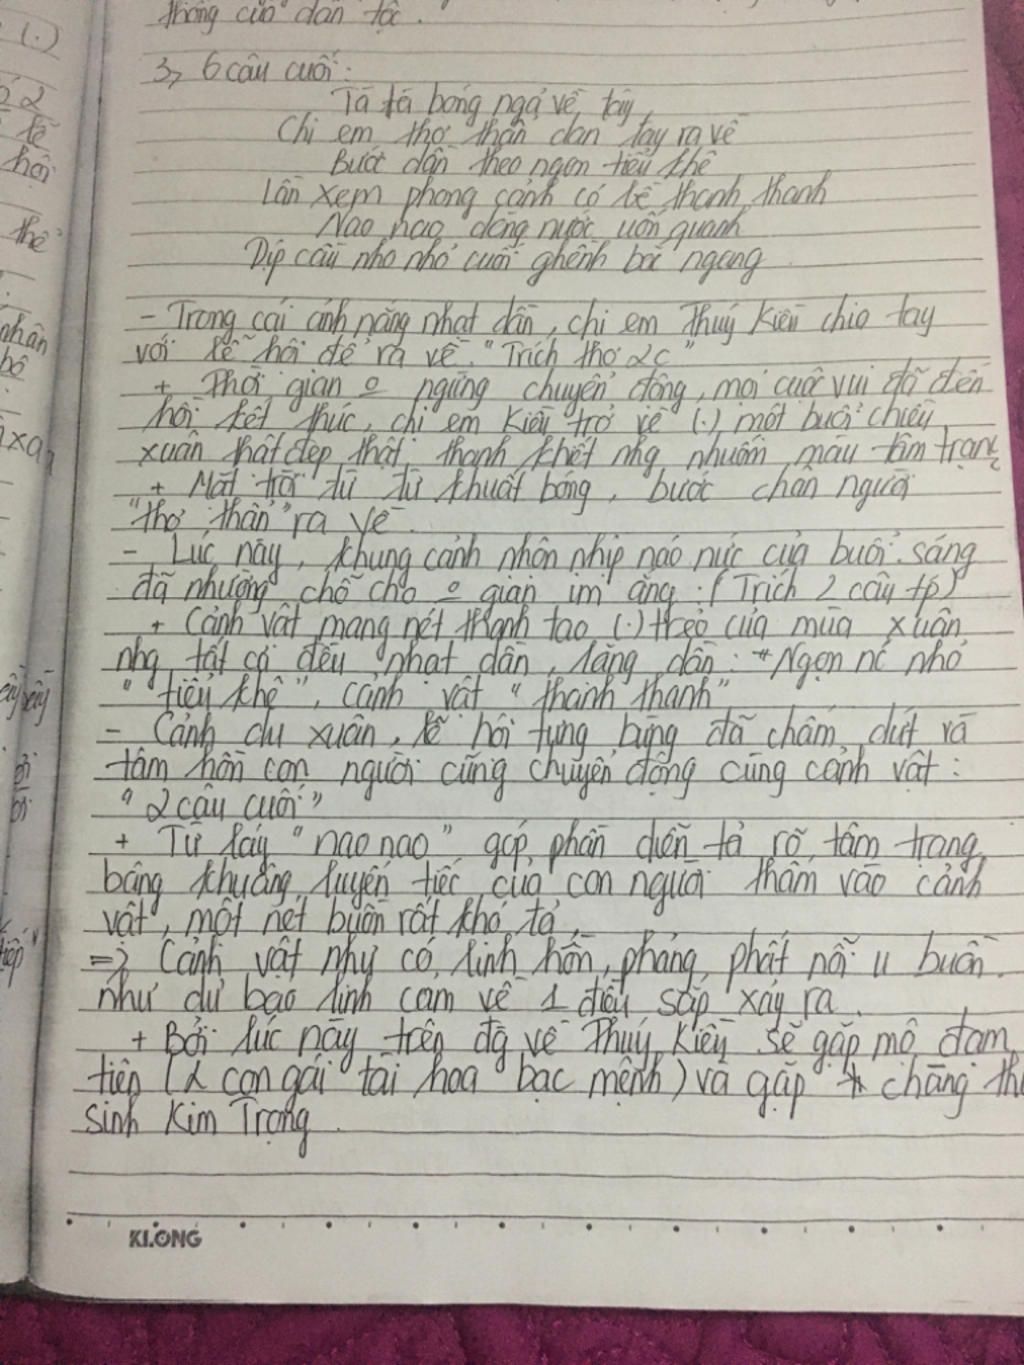 thống của dân tộc.
3, 6 câu cuối:
Tà tà bóng ngả về tây
Chị em thơ thẩn dan tay ra về
Bước dần theo ngọn tiểu khê
Lần xem phong cảnh có bề thanh thanh
Nao nao dòng nước uốn quanh
Dịp cầu nho nhỏ cuối ghềnh bắc ngang
- Trong cái ánh nắng nhạt dần, chị em Thuý Kiều chia tay
với lễ hội để ra về. "Trích thơ 2c"
+ Thời gian o ngừng chuyển động, mọi cuộc vui đã đến
hồi kết thúc, chị em Kiều trở về (.) một buổi chiều
xuân thật đẹp thật thanh khiết nhg nhuốm màu tâm trạng
+ Mặt trời từ từ khuất bóng, bước chân người
"thơ thẩn" ra về.
- Lúc này, khung cảnh nhộn nhịp náo nức của buổi sáng
đã nhường chỗ cho o gian im ắng: (Trích 2 câu tp)
+ Cảnh vật mang nét thanh tao (.) trẻo của mùa xuân
nhg tất cả đều nhạt dần, lặng dần: Ngọn nc nhỏ
"tiểu khê", cảnh vật "thanh thanh"
- Cảnh du xuân, lễ hội tưng bừng đã chấm dứt và
tâm hồn con người cũng chuyển động cùng cảnh vật:
"2 câu cuối"
+ Từ láy "nao nao" góp phần diễn tả rõ tâm trạng
bâng khuâng luyến tiếc của con người thấm vào cảnh
vật, một nét buồn rất khó tả,
=> Cảnh vật như có linh hồn, phảng phất nỗi u buồn
như dự báo linh cảm về 1 điều sắp xảy ra.
+ Bởi lúc này trên đg về Thuý Kiều sẽ gặp mộ đạm
tiên (2 con gái tài hoa bạc mệnh) và gặp chàng th
sinh Kim Trọng.
KLONG
(.)
lễ
hội
thể
nhân